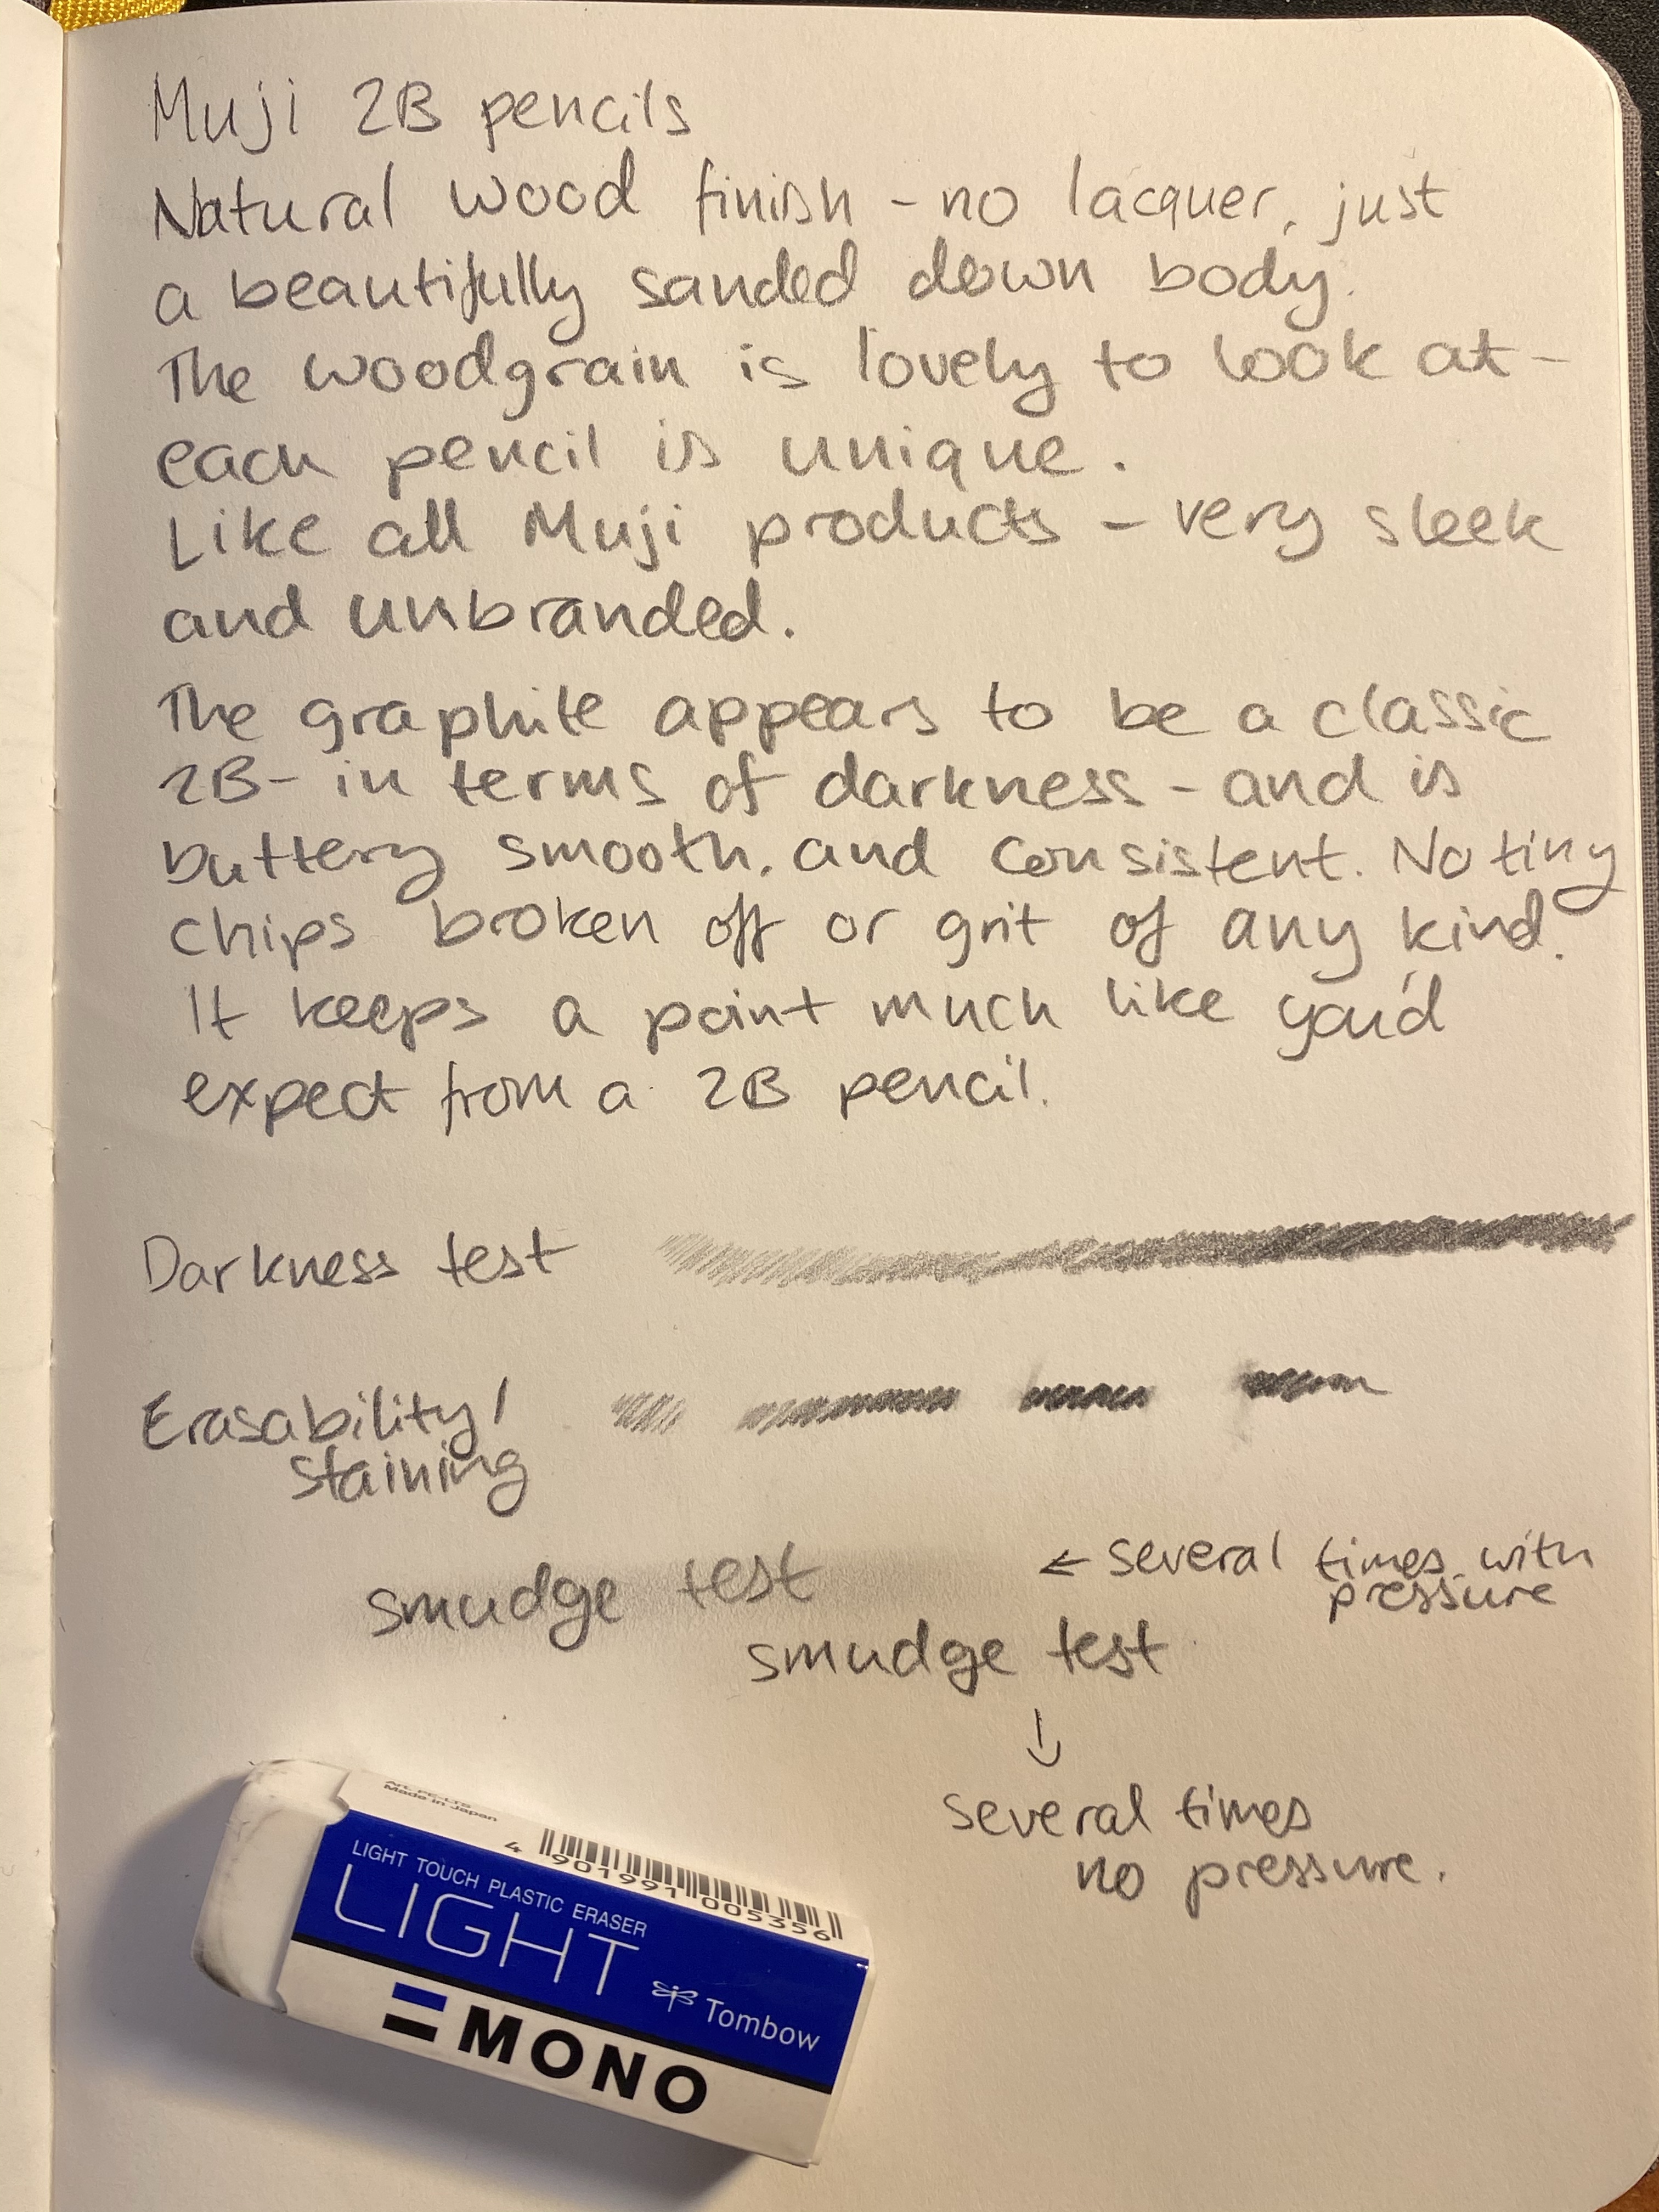 Muji 2B pencils
Natural wood finish - no lacquer, just
a beautifully sanded down body.
The woodgrain is lovely to look at -
each pencil is unique.
Like all Muji products - very sleek
and unbranded.
The graphite appears to be a classic
2B - in terms of darkness - and is
buttery smooth, and consistent. No tiny
chips broken off or grit of any kind.
It keeps a point much like you'd
expect from a 2B pencil.
Darkness test
Erasability/
staining
smudge test
← several times with
pressure
smudge test
↓
several times
no pressure.
Made in Japan
4 901991 005356
LIGHT TOUCH PLASTIC ERASER
LIGHT
Tombow
MONO